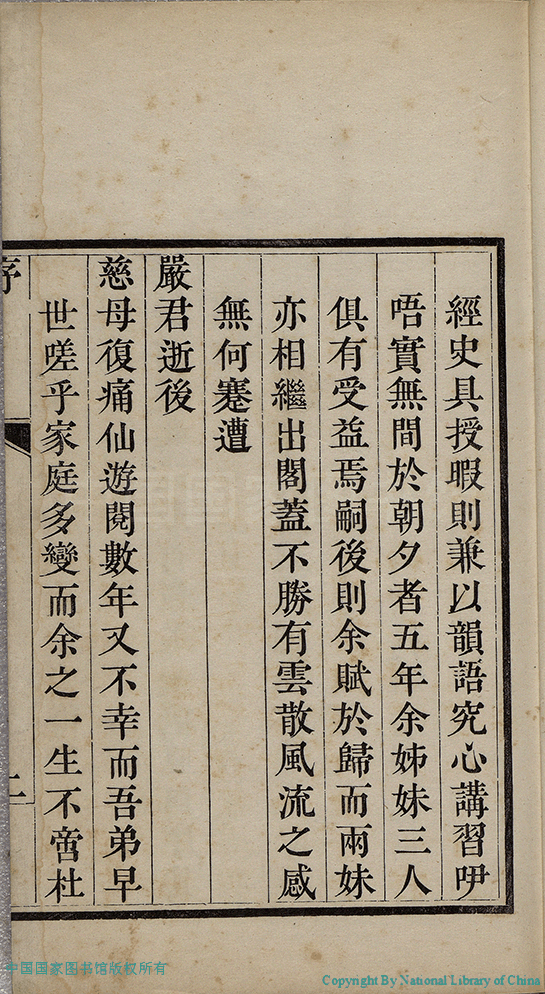 經史具授暇則兼以韻語究心講習咿
唔實無間於朝夕者五年余姊妹三人
俱有受益焉嗣後則余賦於歸而兩妹
亦相繼出閣蓋不勝有雲散風流之感
無何蹇遭
嚴君逝後
慈母復痛仙遊閱數年又不幸而吾弟早
世嗟乎家庭多變而余之一生不啻杜
序
中国国家图书馆版权所有
Copyright By National Library of China